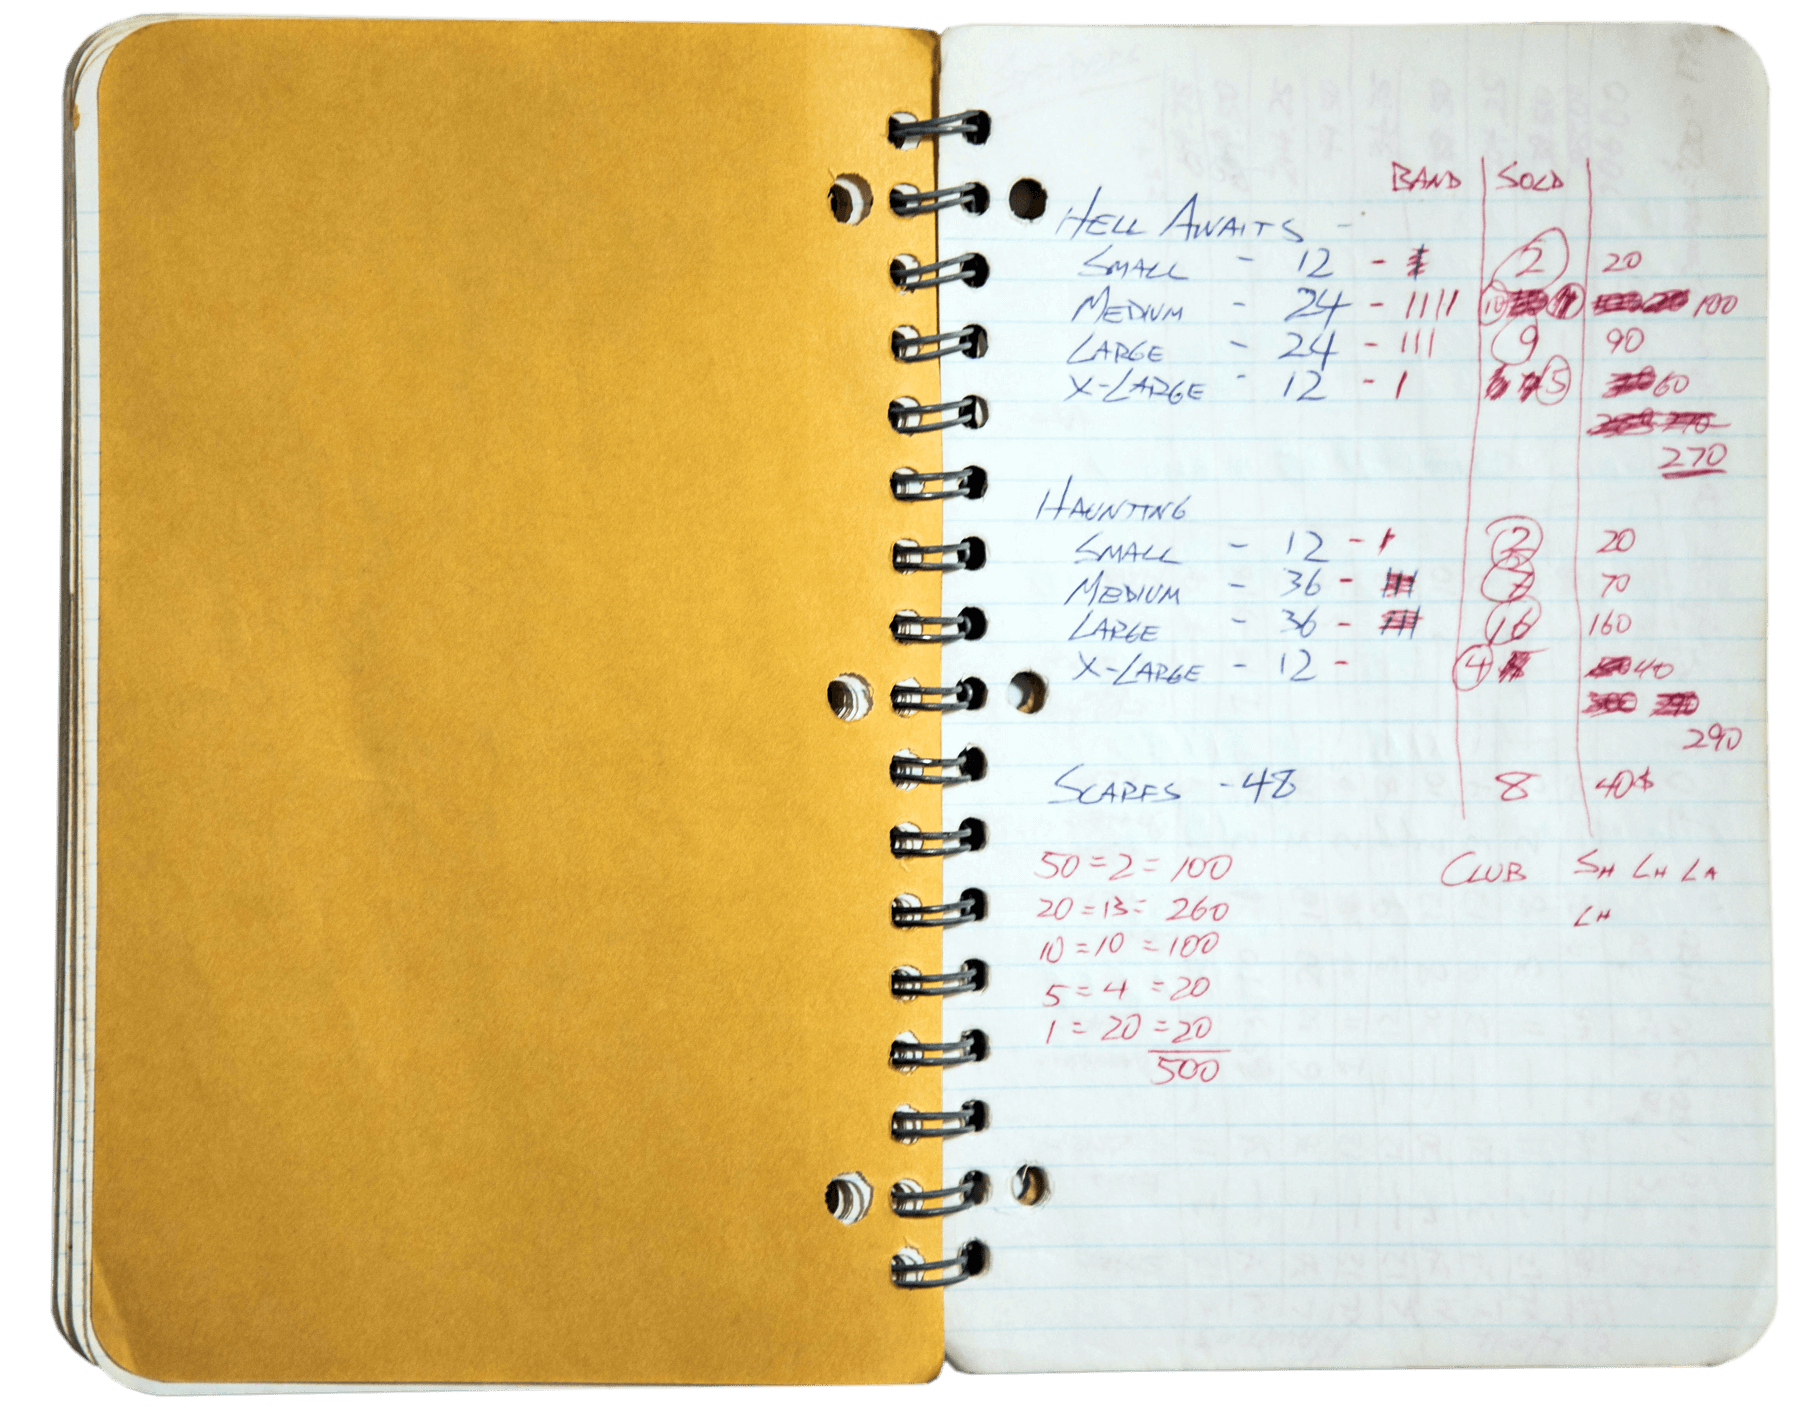 BAND SOLD
HELL AWAITS -
SMALL - 12 - 2 20
MEDIUM - 24 - IIII 10 100
LARGE - 24 - III 9 90
X-LARGE - 12 - I 5 60
270
HAUNTING
SMALL - 12 - I 2 20
MEDIUM - 36 - 7 70
LARGE - 36 - 16 160
X-LARGE - 12 - 4 40
290
SCARFS - 48 8 40$
50 = 2 = 100 CLUB SH LH LA
20 = 13 = 260 LH
10 = 10 = 100
5 = 4 = 20
1 = 20 = 20
500